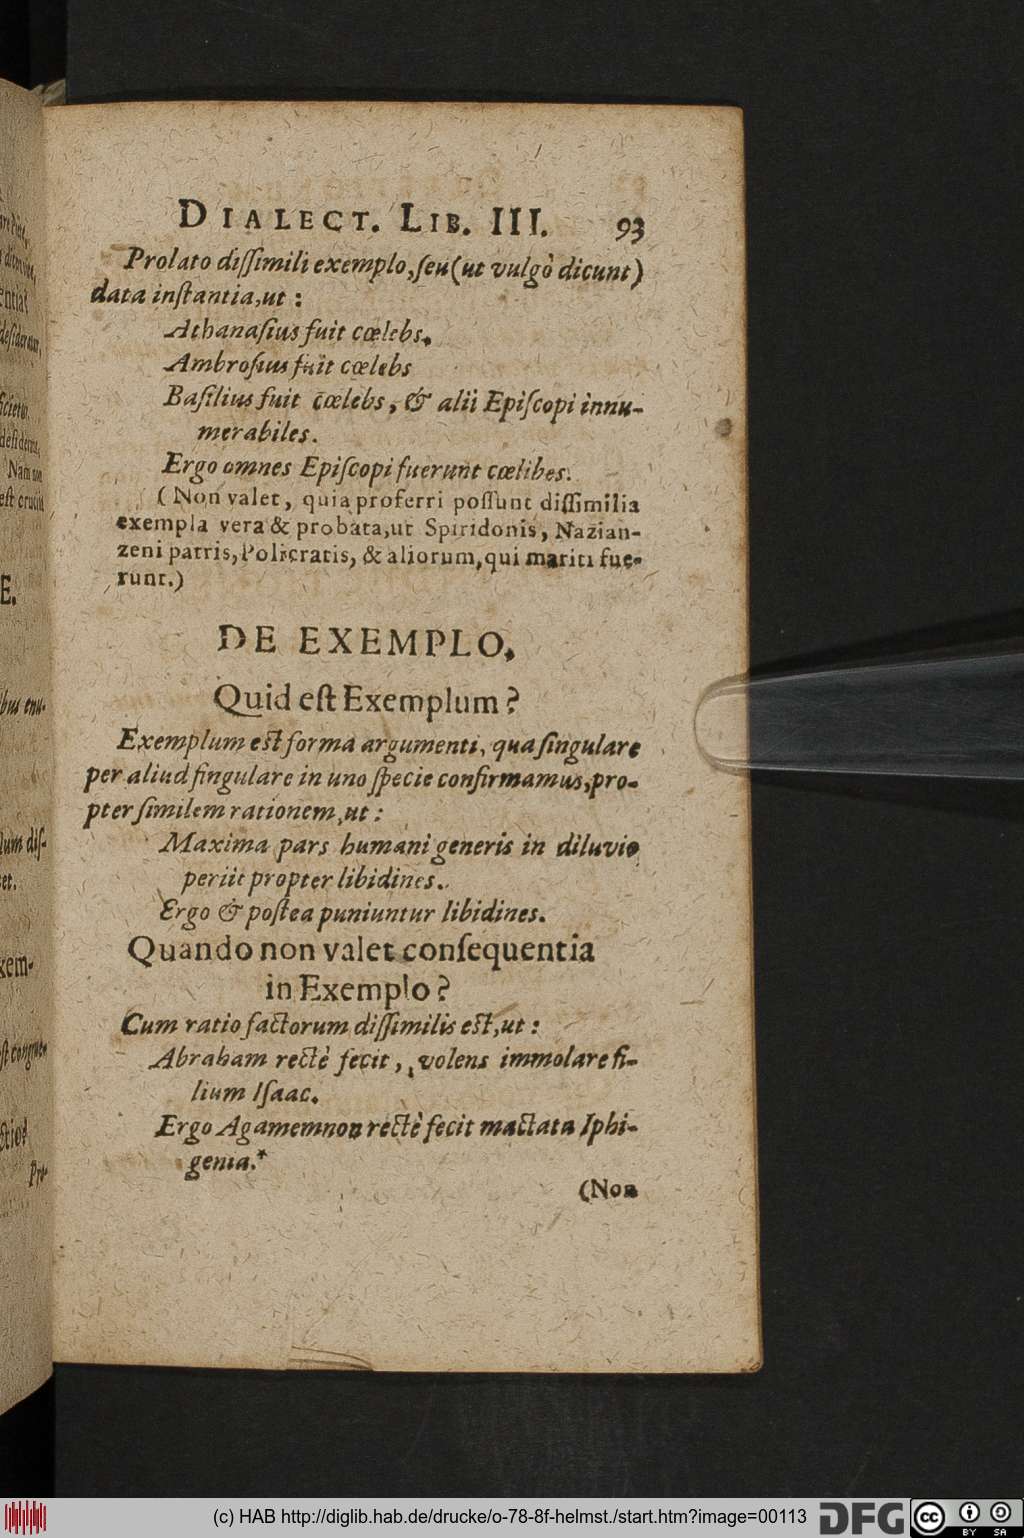 DIALECT. LIB. III. 93
Prolato diſſimili exemplo, ſeu (ut vulgò dicunt)
data inſtantia, ut:
Athanaſius fuit cœlebs.
Ambroſius fuit cœlebs
Baſilius fuit cœlebs, & alii Epiſcopi innu-
merabiles.
Ergo omnes Epiſcopi fuerunt cœlibes.
(Non valet, quia proferri poſſunt diſſimilia
exempla vera & probata, ut Spiridonis, Nazian-
zeni patris, Policratis, & aliorum, qui mariti fue-
runt.)
DE EXEMPLO.
Quid eſt Exemplum?
Exemplum eſt forma argumenti, qua ſingulare
per aliud ſingulare in uno ſpecie confirmamus, pro-
pter ſimilem rationem, ut:
Maxima pars humani generis in diluvio
periit propter libidines.
Ergo & poſtea puniuntur libidines.
Quando non valet conſequentia
in Exemplo?
Cum ratio factorum diſſimilis eſt, ut:
Abraham rectè fecit, volens immolare fi-
lium Iſaac.
Ergo Agamemnon rectè fecit mactata Iphi-
genia.*
(Non
(c) HAB http://diglib.hab.de/drucke/o-78-8f-helmst./start.htm?image=00113 DFG cc BY SA